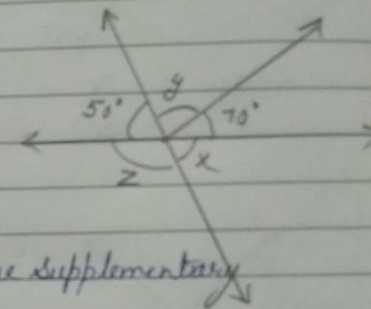 y
50° 70°
z x
e supplementary